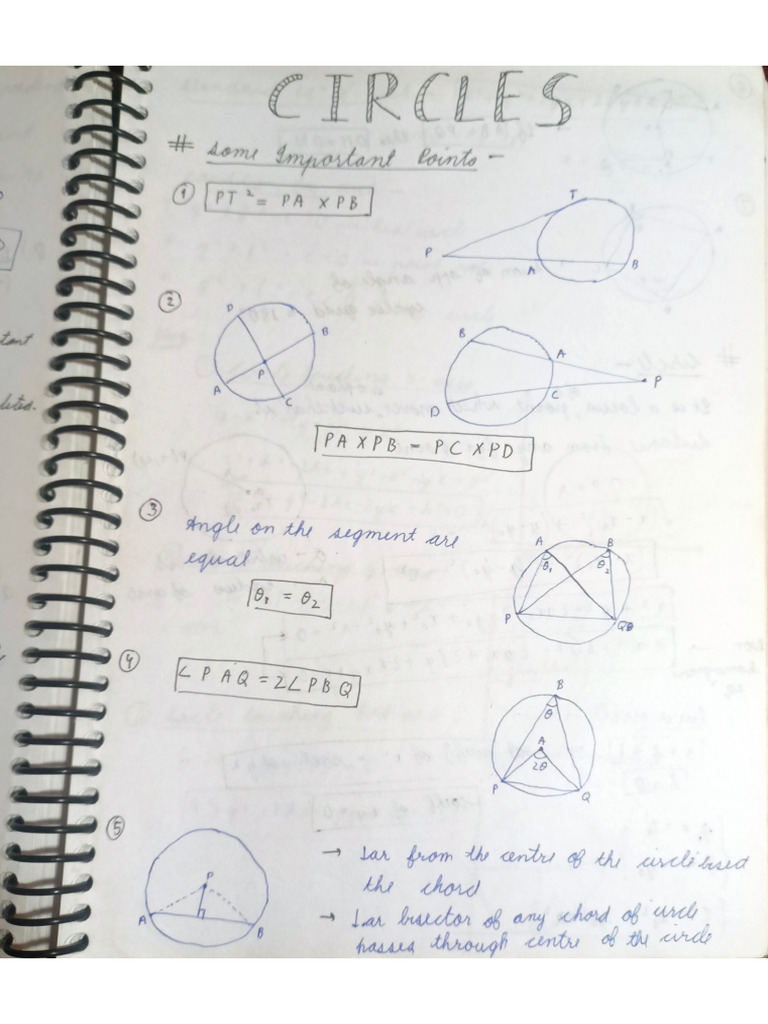 CIRCLES
# Some Important Points -
① PT² = PA X PB
T
P
A
B
②
D
B
P
A
C
B
A
P
C
D
PA X PB = PC X PD
③
Angle on the segment are
equal
θ₁ = θ₂
A
B
θ₁
θ₂
P
Q
④
∠PAQ = 2∠PBQ
B
θ
A
2θ
P
Q
⑤
P
A
B
→ ⊥ar from the centre of the circle bisect
the chord
→ ⊥ar bisector of any chord of circle
passes through centre of the circle